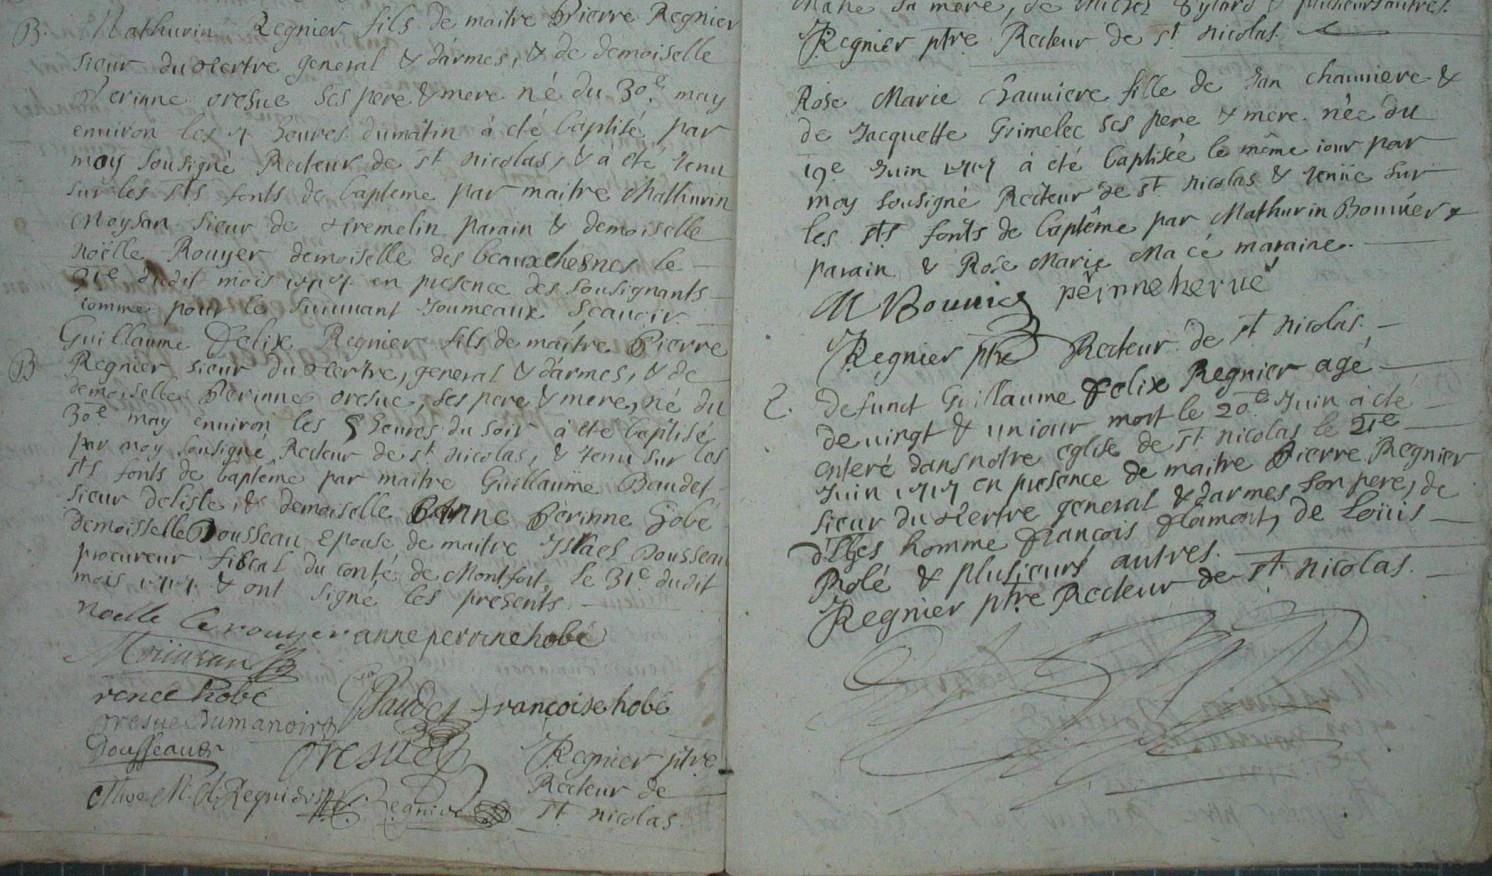 B. Mathurin Regnier fils de maitre Pierre Regnier
sieur du tertre general & d'armes, & de demoiselle
Perinne oresve ses pere & mere né du 30.e may
environ les 4 heures du mâtin à été baptisé par
moy sousigné Recteur de st nicolas, & à été tenu
sur les sts fonts de baptême par maitre Mathurin
Moysan sieur de Kremelin parain & demoiselle
noëlle Rouyer demoiselle des beauxchesnes le
31e dudit mois 1717 en presence des sousignants
comme pour le suiuant Joumeaux Scauoir.
Guillaume Felix Regnier fils de maitre Pierre
B Regnier sieur du tertre, general & d'armes, & de
demoiselle Perinne oresue, ses pere & mere, né du
30e may environ les 5 heures du soir à été baptisé
par moy sousigné Recteur de st nicolas, & tenu sur les
sts fonts de baptême par maitre Guillaume Baudet
sieur delisle, & demoiselle Anne Perinne hobé
demoisselle Dousseau Epouse de maitre Israel Dousseau
procureur fiscal du conté de Montfort, le 31e dudit
mois 1717 & ont signé les presents
noelle le rouyer anne perrine hobé
renee hobé Baudet francoise hobé
oresue dumanoir
Dousseau oresue Regnier ptre
Regnier Recteur de
st nicolas.
Marie sa mere, de Michel & plusieurs autres.
Regnier ptre Recteur de st nicolas.
Rose Marie Chauuiere fille de Jan chauuiere &
de Jacquette Grimelec ses pere & mere née du
19e Juin 1717 à été baptisée le même iour par
moy sousigné Recteur de st nicolas & tenüe sur
les sts fonts de baptême par Mathurin Bouuier
parain & Rose Marie Macé maraine.
M Bouuier perinne herué
Regnier ptre Recteur de st nicolas.
2. defunct Guillaume Felix Regnier agé
de uingt & un iour mort le 20.e Juin à été
enteré dans notre eglise de st nicolas le 21e
Juin 1717 en presence de maitre Pierre Regnier
sieur du tertre general & d'armes son pere, de
homme François Flamont, de Loüis
Molé & plusieurs autres.
Regnier ptre Recteur de st nicolas.